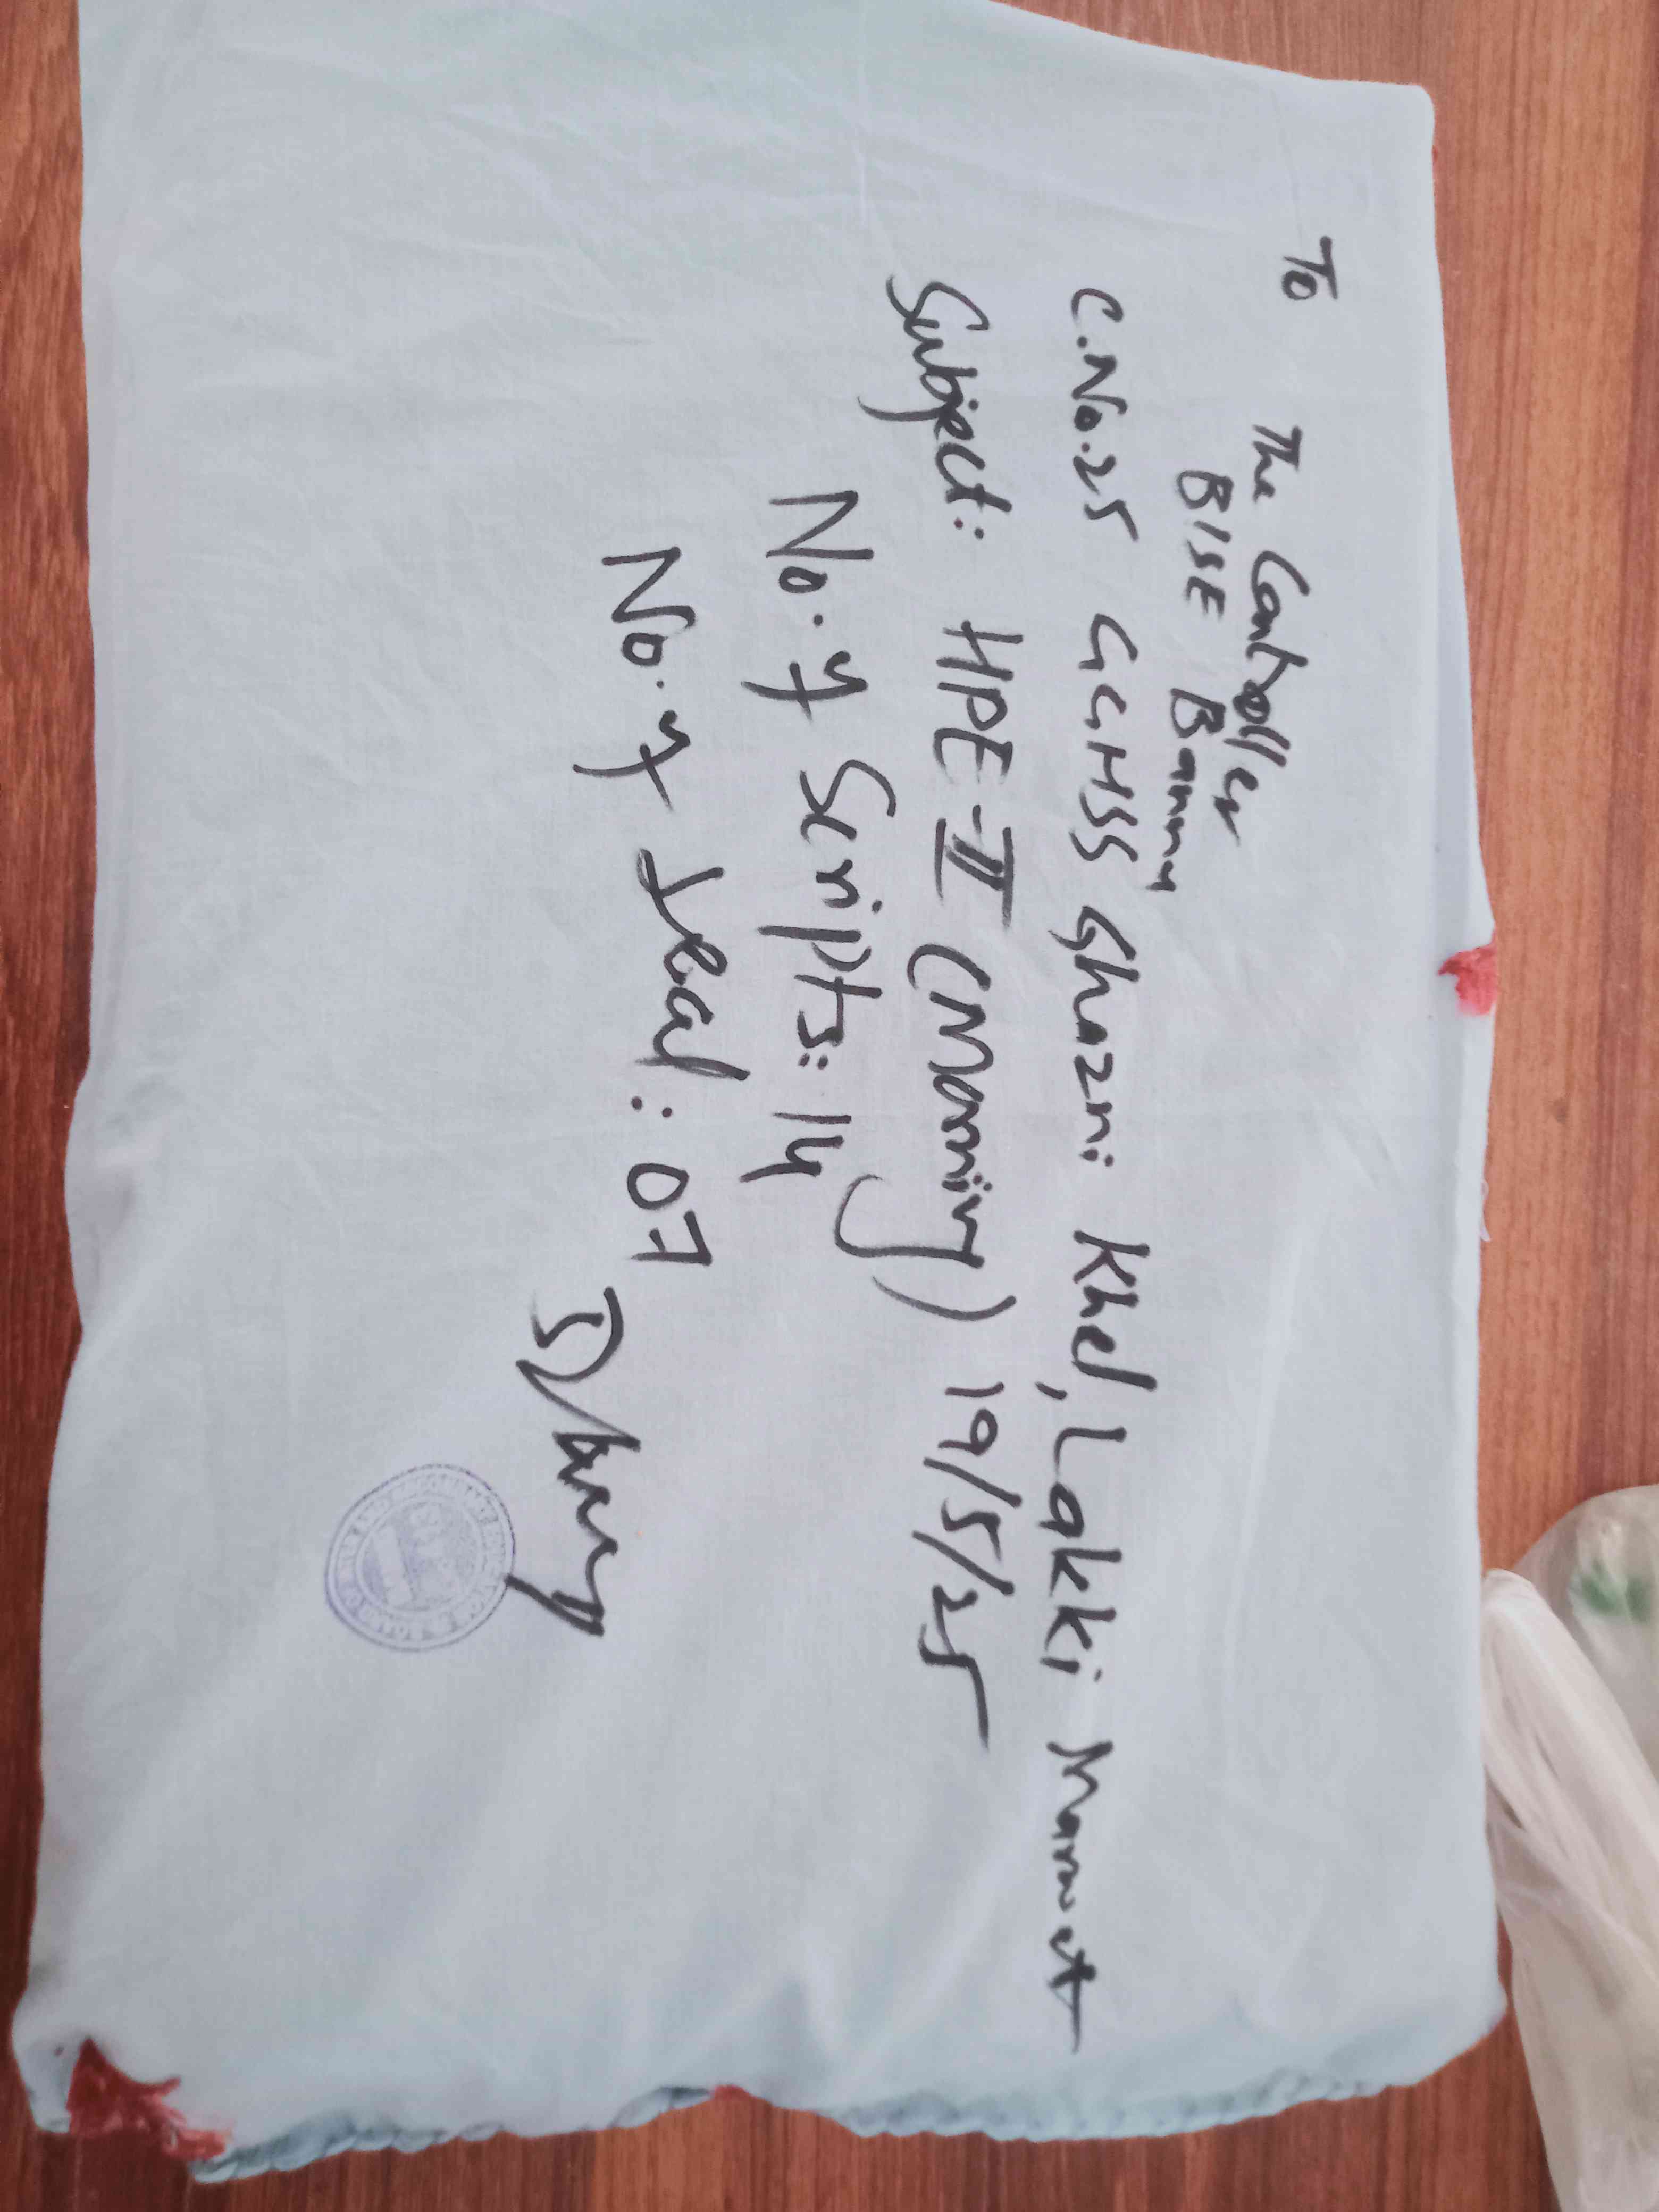 To
The Controller
BISE Bannu
C.No.25 GGHSS Ghazni Khel, Lakki Marwat
Subject: HPE-II (Morning) 19/5/25
No. of Scripts: 14
No. of Seal: 07